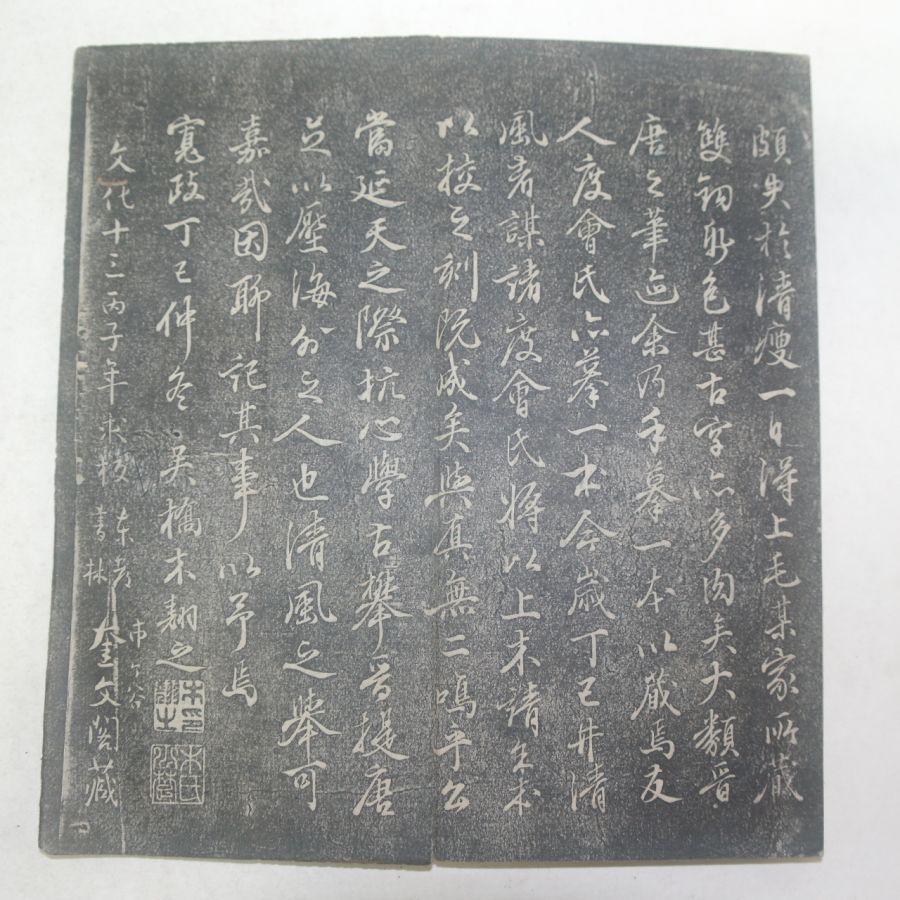 頗失於清瘦一日得上毛某家所蔵
雙鉤形色甚古字亦多肉矣大類晋
唐之筆迹余乃手摹一本以蔵焉友
人度會氏亦摹一本今歳丁巳井清
風君謀諸度會氏将以上木請余本
以校之刻既成矣與真無二嗚乎公
當延天之際抗心學古攀晋提唐
足以壓海外之人也清風之舉可
嘉哉因聊記其事以予焉
寛政丁巳仲冬 吴橋木翺之
文化十三丙子年求板 東都書林 市谷 奎文閣蔵